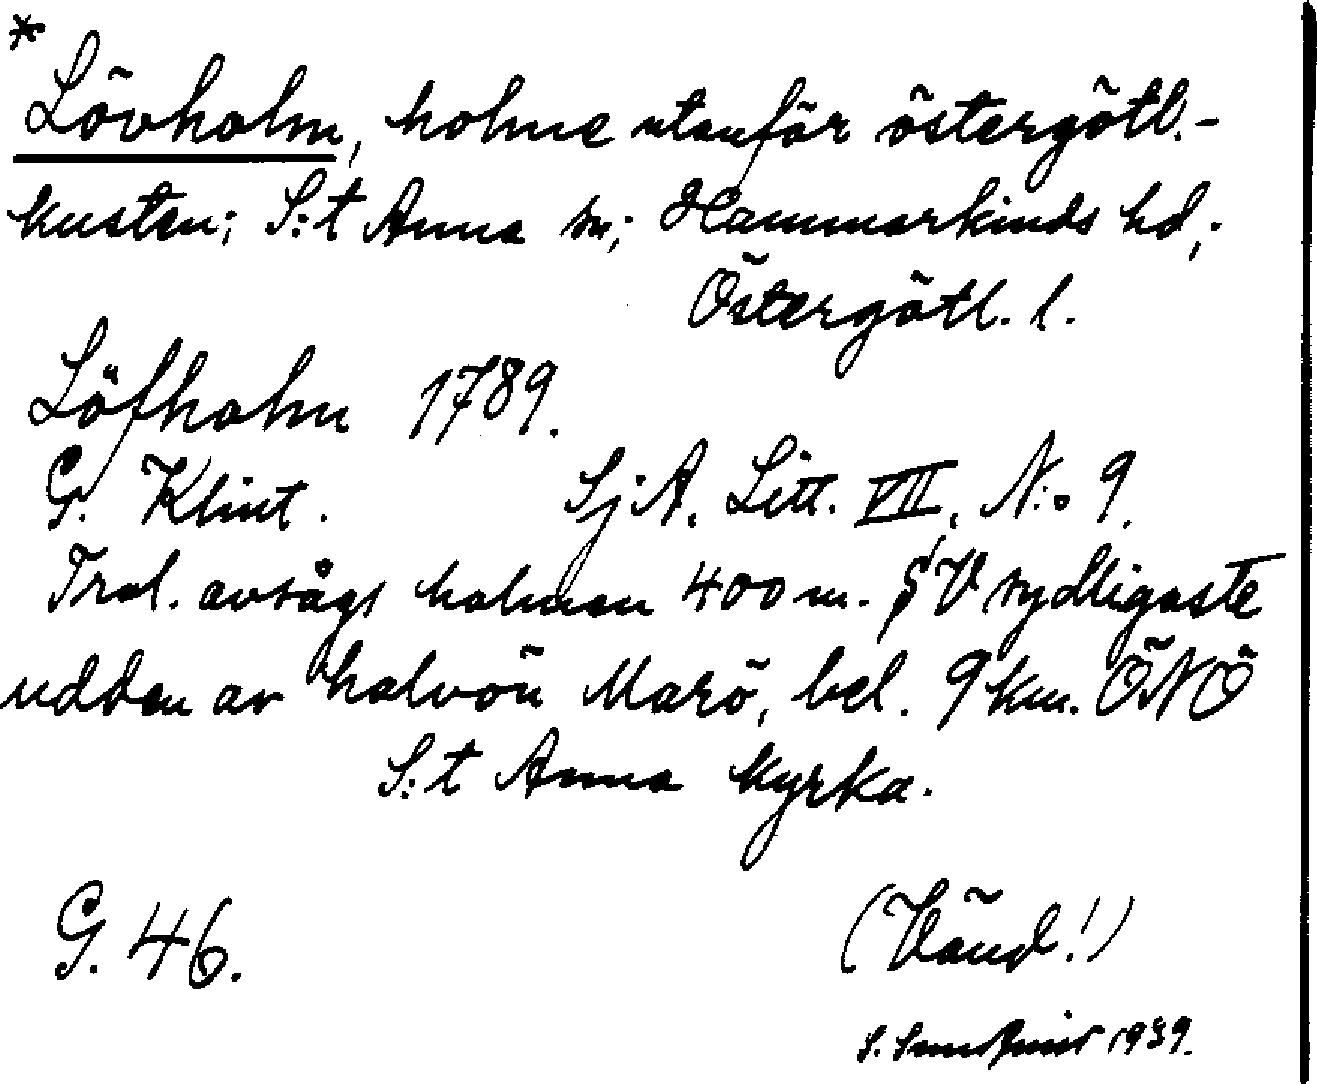 *
Lövholm, holme utanför östergötl.-
kusten; S:t Anna sn; Hammarkinds hd;
Östergötl. l.
Löfholm 1789.
G. Klint. SjA. Litt. VII, N:o 9.
Trol. avsågs holmen 400 m. V sydligaste
udden av halvön Marö, bel. 9 km. ÖNÖ
S:t Anna kyrka.
G. 46.
(Vänd!)
S. 1939.